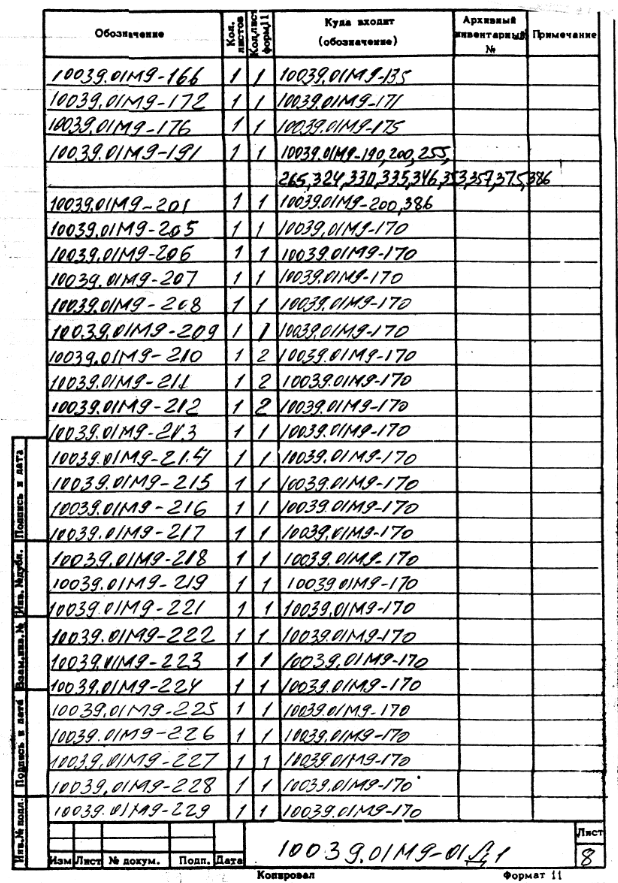 Обозначение Кол. листов Кол.лист форм.11 Куда входит (обозначение) Архивный инвентарный № Примечание
10039.01М9-166 1 1 10039.01М9-135
10039.01М9-172 1 1 10039.01М9-171
10039.01М9-176 1 1 10039.01М9-175
10039.01М9-191 1 1 10039.01М9-190,200,255,
265,324,330,335,346,353,357,375,386
10039.01М9-201 1 1 10039.01М9-200,386
10039.01М9-205 1 1 10039.01М9-170
10039.01М9-206 1 1 10039.01М9-170
10039.01М9-207 1 1 10039.01М9-170
10039.01М9-208 1 1 10039.01М9-170
10039.01М9-209 1 1 10039.01М9-170
10039.01М9-210 1 2 10039.01М9-170
10039.01М9-211 1 2 10039.01М9-170
10039.01М9-212 1 2 10039.01М9-170
10039.01М9-213 1 1 10039.01М9-170
10039.01М9-214 1 1 10039.01М9-170
10039.01М9-215 1 1 10039.01М9-170
10039.01М9-216 1 1 10039.01М9-170
10039.01М9-217 1 1 10039.01М9-170
10039.01М9-218 1 1 10039.01М9-170
10039.01М9-219 1 1 10039.01М9-170
10039.01М9-221 1 1 10039.01М9-170
10039.01М9-222 1 1 10039.01М9-170
10039.01М9-223 1 1 10039.01М9-170
10039.01М9-224 1 1 10039.01М9-170
10039.01М9-225 1 1 10039.01М9-170
10039.01М9-226 1 1 10039.01М9-170
10039.01М9-227 1 1 10039.01М9-170
10039.01М9-228 1 1 10039.01М9-170
10039.01М9-229 1 1 10039.01М9-170
Подпись и дата
Инв. №дубл.
Взам.инв.№
Подпись и дата
Инв.№ подл.
Изм Лист № докум. Подп. Дата
10039.01М9-01Д1
Лист
8
Копировал Формат 11